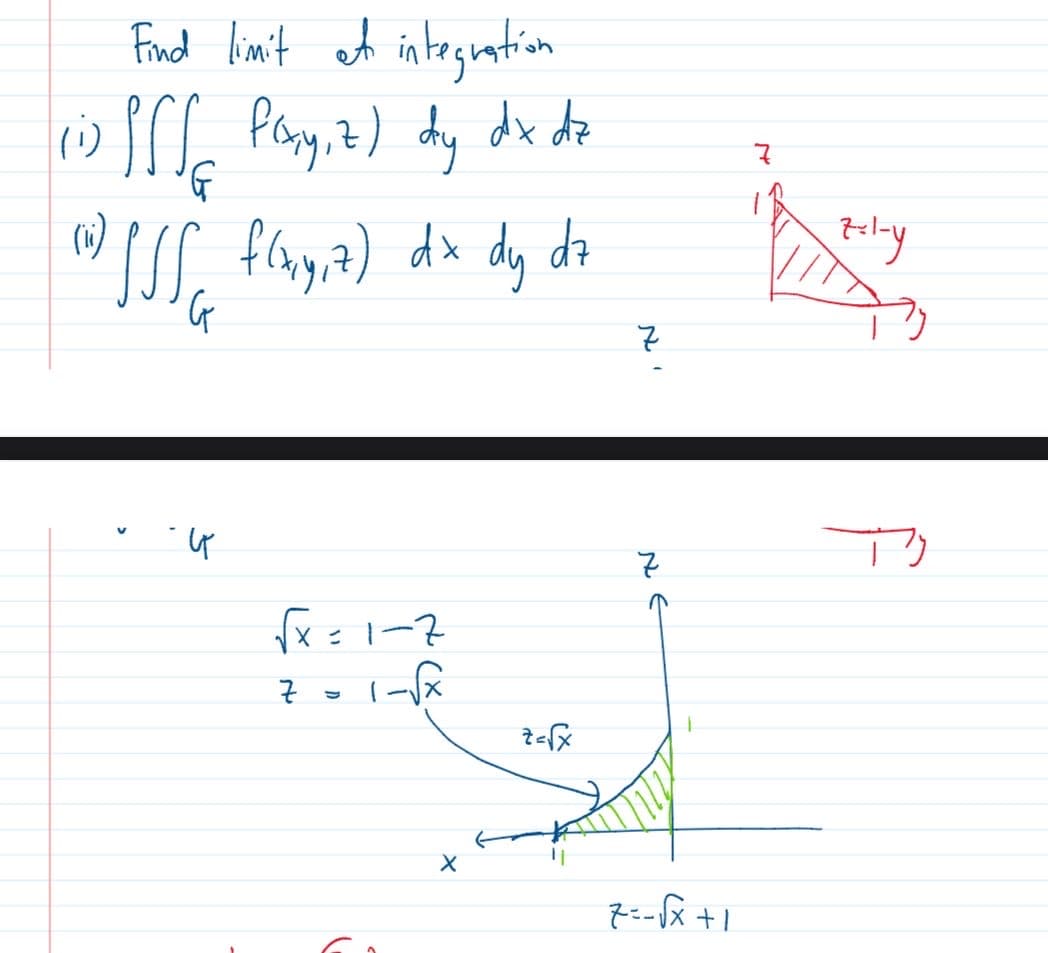 Find limit of integration
(i) ∫∫∫_G f(x,y,z) dy dx dz
(ii) ∫∫∫_G f(x,y,z) dx dy dz
z
1
z=1-y
1 y
z
G
1 y
z
√x = 1-z
z = 1-√x
z=√x
1
x
1 1
z=-√x +1